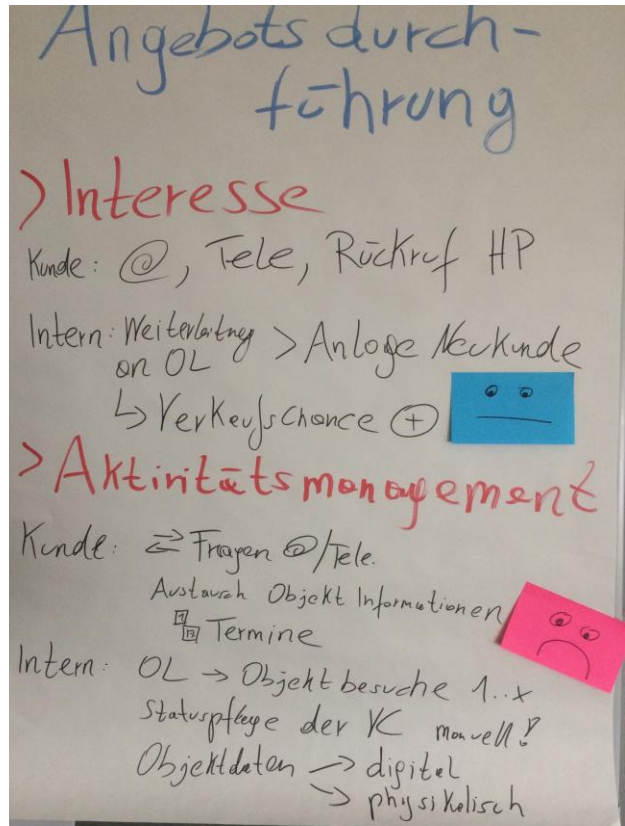 Angebots durch-
führung
> Interesse
Kunde: @, Tele, Rückruf HP
Intern: Weiterleitung > Anlage Neukunde
an OL
↳ Verkaufschance ⊕
> Aktivitätsmanagement
Kunde: ⇄ Fragen @/Tele.
Austausch Objekt Informationen
Termine
Intern: OL → Objektbesuche 1..x
Statuspflege der VC manuell!
Objektdaten → digital
→ physikalisch